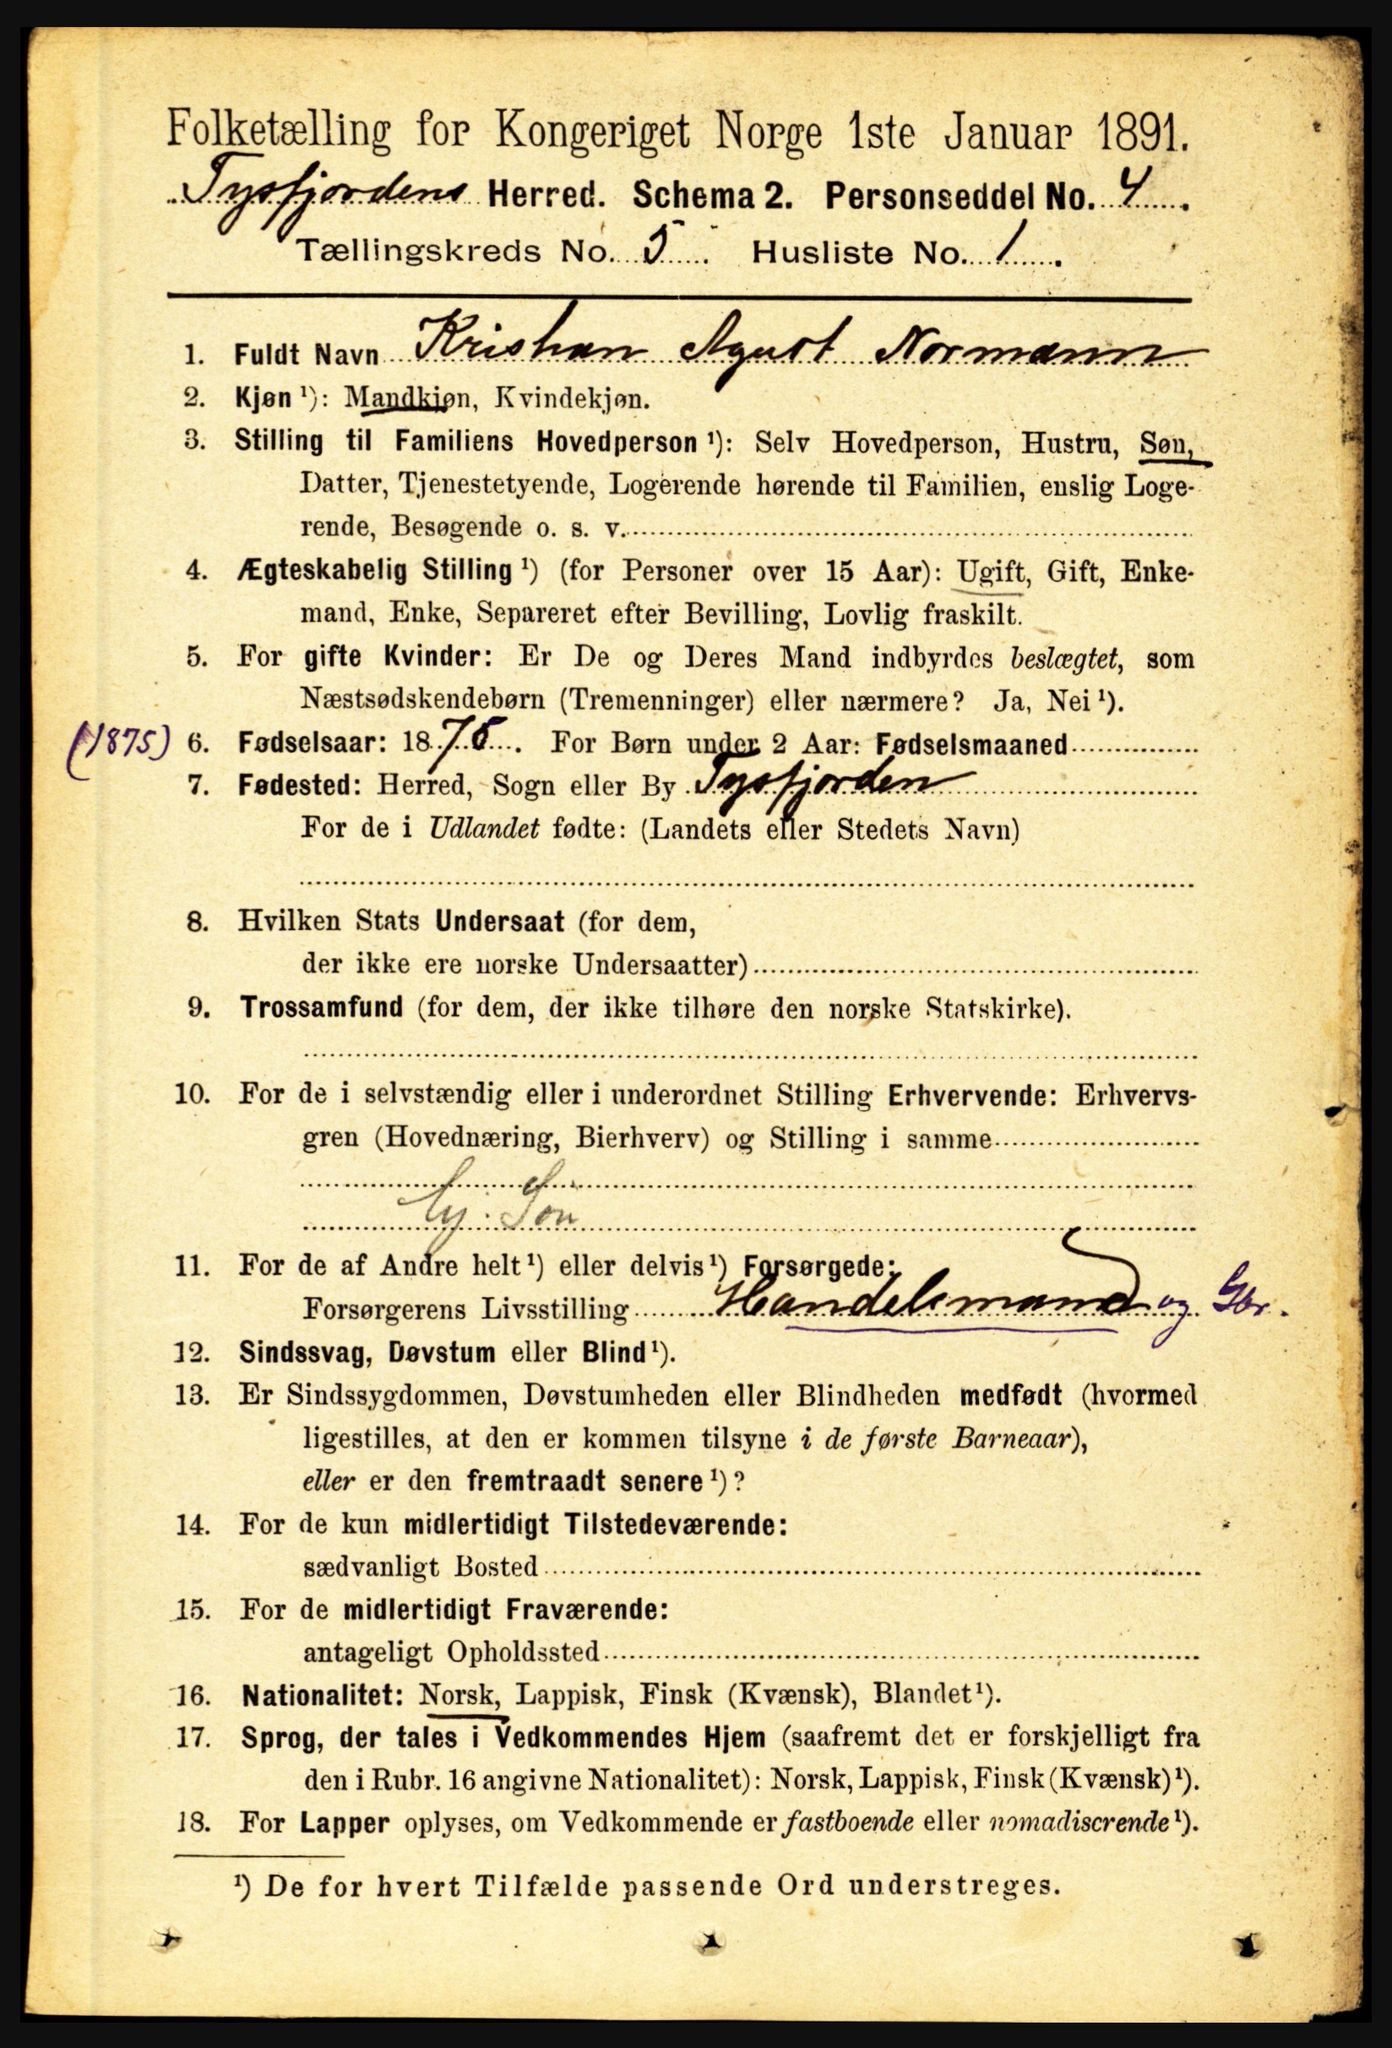 Folketælling for Kongeriget Norge 1ste Januar 1891.
Tysfjordens Herred. Schema 2. Personseddel No. 4.
Tællingskreds No. 5. Husliste No. 1.
1. Fuldt Navn Kristian Agust Normann
2. Kjøn ¹): Mandkjøn, Kvindekjøn.
3. Stilling til Familiens Hovedperson ¹): Selv Hovedperson, Hustru, Søn,
Datter, Tjenestetyende, Logerende hørende til Familien, enslig Loge-
rende, Besøgende o. s. v.
4. Ægteskabelig Stilling ¹) (for Personer over 15 Aar): Ugift, Gift, Enke-
mand, Enke, Separeret efter Bevilling, Lovlig fraskilt.
5. For gifte Kvinder: Er De og Deres Mand indbyrdes beslægtet, som
Næstsødskendebørn (Tremenninger) eller nærmere? Ja, Nei ¹).
(1875) 6. Fødselsaar: 1875. For Børn under 2 Aar: Fødselsmaaned
7. Fødested: Herred, Sogn eller By Tysfjorden
For de i Udlandet fødte: (Landets eller Stedets Navn)
8. Hvilken Stats Undersaat (for dem,
der ikke ere norske Undersaatter)
9. Trossamfund (for dem, der ikke tilhøre den norske Statskirke).
10. For de i selvstændig eller i underordnet Stilling Erhvervende: Erhvervs-
gren (Hovednæring, Bierhverv) og Stilling i samme
Søn
11. For de af Andre helt ¹) eller delvis ¹) Forsørgede:
Forsørgerens Livsstilling Handelsmand og Gbr.
12. Sindssvag, Døvstum eller Blind ¹).
13. Er Sindssygdommen, Døvstumheden eller Blindheden medfødt (hvormed
ligestilles, at den er kommen tilsyne i de første Barneaar),
eller er den fremtraadt senere ¹)?
14. For de kun midlertidigt Tilstedeværende:
sædvanligt Bosted
15. For de midlertidigt Fraværende:
antageligt Opholdssted
16. Nationalitet: Norsk, Lappisk, Finsk (Kvænsk), Blandet ¹).
17. Sprog, der tales i Vedkommendes Hjem (saafremt det er forskjelligt fra
den i Rubr. 16 angivne Nationalitet): Norsk, Lappisk, Finsk (Kvænsk) ¹).
18. For Lapper oplyses, om Vedkommende er fastboende eller nomadiserende ¹).
¹) De for hvert Tilfælde passende Ord understreges.